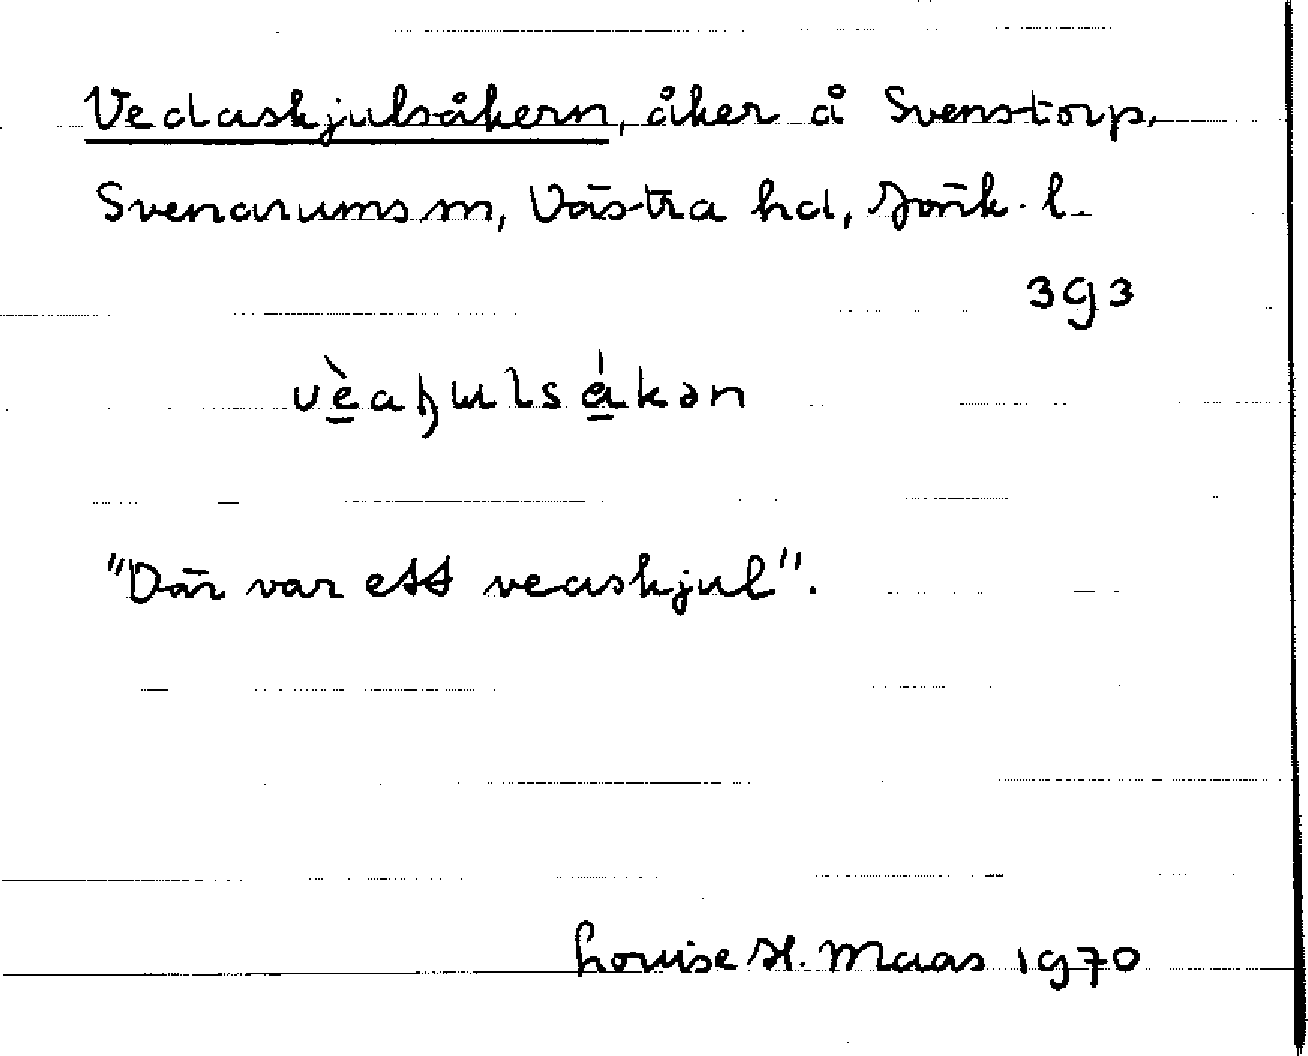 Vedaskjulsåkern, åker å Svenstorp,
Svenarums sn, Västra hd, Jönk. l.
3g3
vèaɧulsåkən
"Där var ett veaskjul".
Louise H. Maas 1970